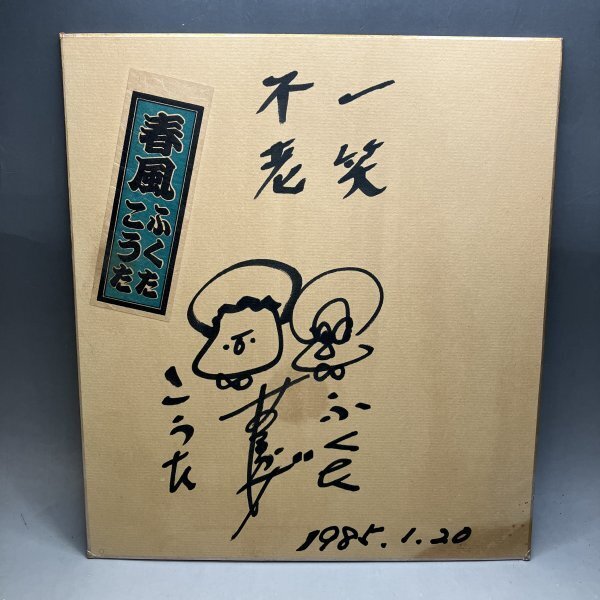 一笑
不老
春風
ふくた
こうた
ふくた
こうた
1985.1.20